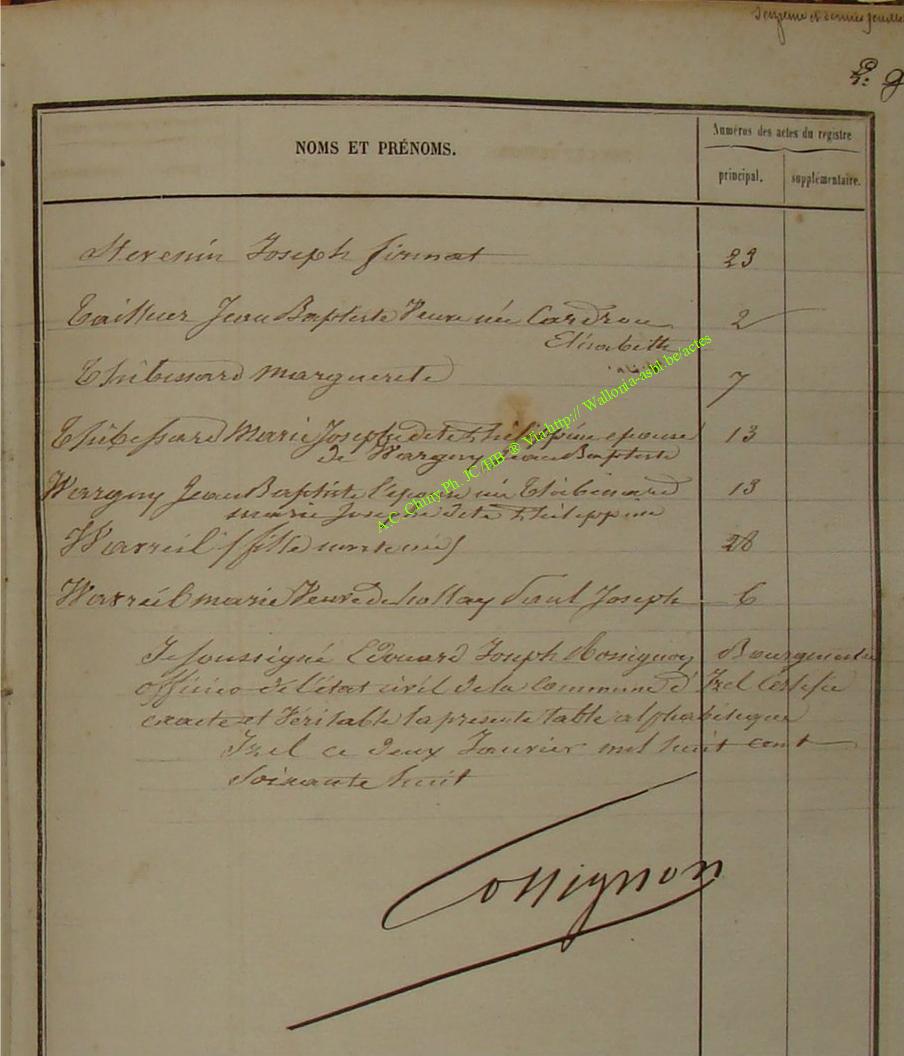 Seizième et dernier feuillet
NOMS ET PRÉNOMS.
Numéros des actes du registre
principal.
supplémentaire.
Stevenin Joseph firmat 23
Tailleur Jean Baptiste Veuve née Cardron 2
Elisabeth
Thibessard Marguerite 7
Thibessard Marie Josephe dite Philippine épouse 13
de Wargny Jean Baptiste
Wargny Jean Baptiste l'épouse née Thibessard 13
marie Josephe dite Philippine
Warreil (fille mort née) 28
Warreil marie Veuve de hollay Paul Joseph 6
Je soussigné Edouard Joseph Rossignon Bourgmestre
officier de l'état civil de la Commune d'Izel Certifie
exacte et Véritable la présente table alphabétique
Izel ce deux Janvier mil huit cent
soixante huit
Rossignon
A.C. Chiny Ph. JC/HB @ Via http:// Wallonia-asbl.be/actes